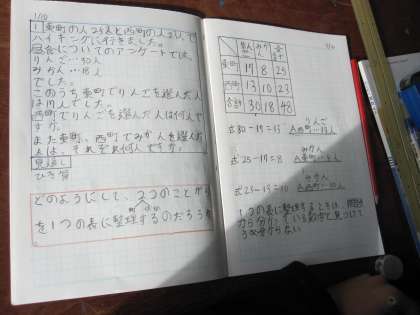 1/10
1 東町の人25人と西町の人23人で
ハイキングに行きました。
昼食についてのアンケートでは、
りんご…30人
みかん…18人
でした。
このうち東町でりんごを選んだ人
は17人でした。
西町でりんごを選んだ人は何人で
すか。
また東町、西町でみかんを選んだ
人は、それぞれ何人ですか。
見通し
ひき算
どのようにして、2つのことがら
を1つの表に整理するのだろうか
りんご みかん 合計
東町 17 8 25
西町 13 10 23
合計 30 18 48
式30-17=13
りんご
A西町…13人
式25-17=8
みかん
A東町…8人
式23-13=10
みかん
A西町…10人
1つの表に整理するときは、
分かっている数を見つけて